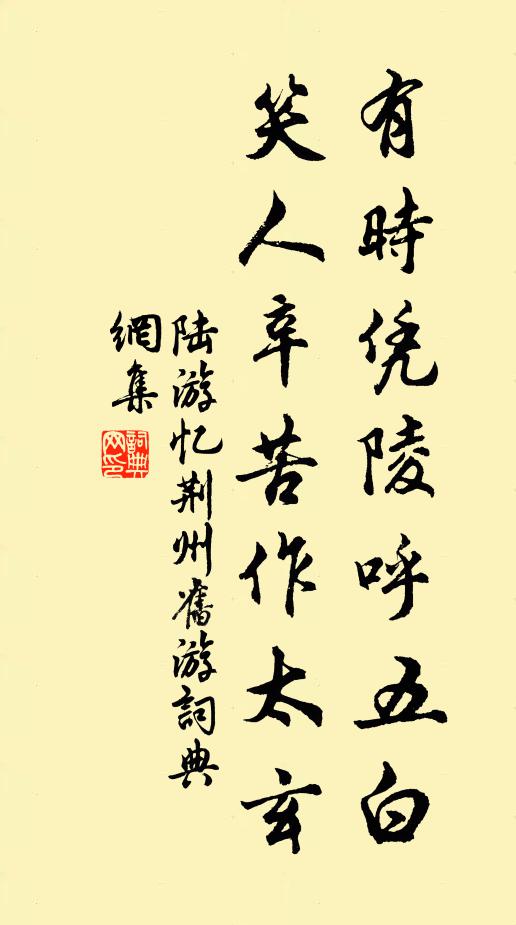 有時凭陵呼五白
笑人辛苦作太玄
陆游忆荆州舊游詞典
網集
詞典
网印